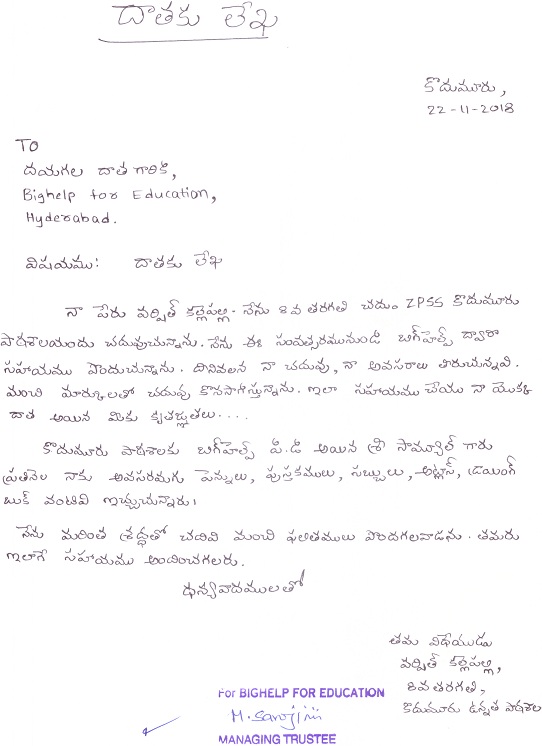 దాతకు లేఖ
కొదుమూరు,
22-11-2018
TO
దయగల దాత గారికి,
Bighelp for Education,
Hyderabad.
విషయము: దాతకు లేఖ
నా పేరు వర్షిత్ కల్లెపల్లి. నేను 8వ తరగతి చదువు ZPSS కొదుమూరు
పాఠశాలయందు చదువుచున్నాను. నేను ఈ సంవత్సరమునుండి బిగ్‌హెల్ప్ ద్వారా
సహాయము పొందుచున్నాను. దీనివలన నా చదువు, నా అవసరాలు తీరుచున్నవి.
మంచి మార్కులతో చదువు కొనసాగిస్తున్నాను. ఇలా సహాయము చేయు నా యొక్క
దాత అయిన మీకు కృతజ్ఞతలు....
కొదుమూరు పాఠశాలకు బిగ్‌హెల్ప్ పి.డి అయిన శ్రీ సామ్యూల్ గారు
ప్రతినెల నాకు అవసరమగు పెన్నులు, పుస్తకములు, సబ్బులు, అట్లాస్, డ్రాయింగ్
బుక్ వంటివి ఇచ్చుచున్నారు.
నేను మరింత శ్రద్ధతో చదివి మంచి ఫలితములు పొందగలవాడను. తమరు
ఇలాగే సహాయము అందించగలరు.
ధన్యవాదములతో
తమ విధేయుడు
వర్షిత్ కల్లెపల్లి,
8వ తరగతి,
కొదుమూరు ఉన్నత పాఠశాల
For BIGHELP FOR EDUCATION
M. Sarojini
MANAGING TRUSTEE